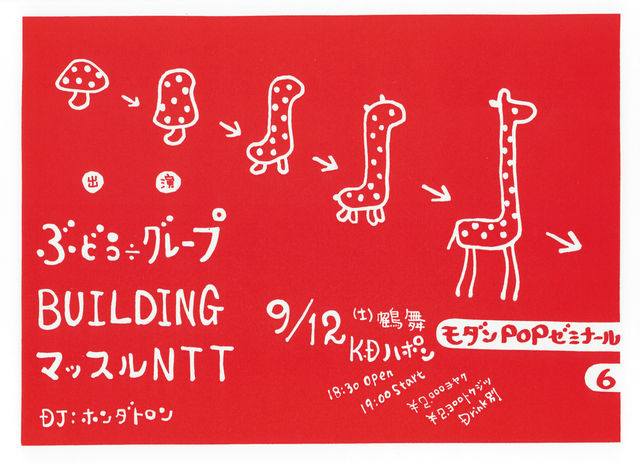 出演
ぶどう÷グレープ
BUILDING
マッスルNTT
DJ:ホンダトロン
9/12(土)鶴舞
K.Dハポン
18:30 open
19:00 start
¥2,000ヨヤク
¥2,300トウジツ
Drink別
モダンPOPゼミナール
6